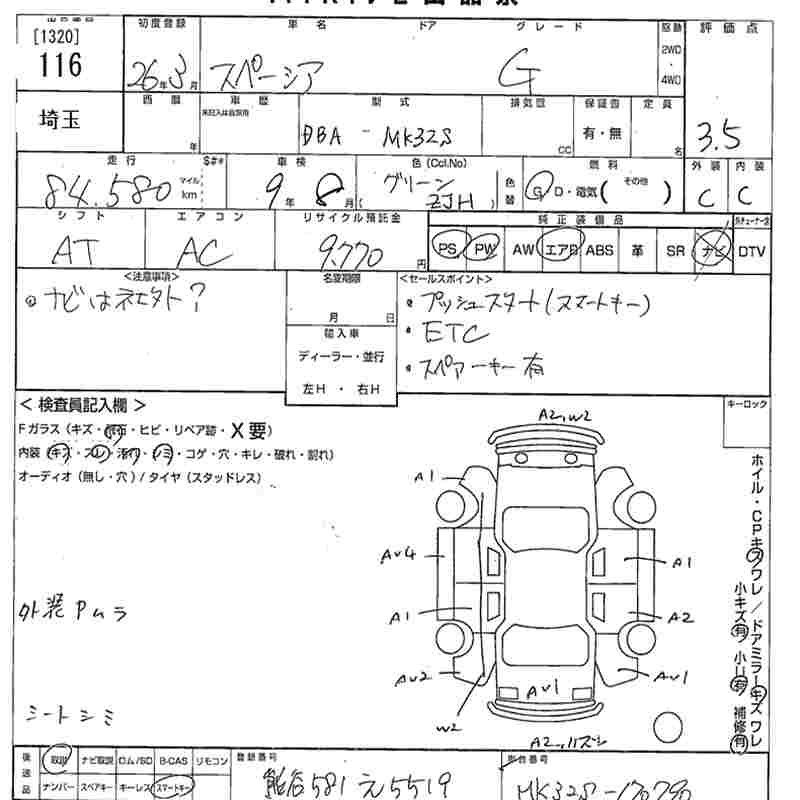 [1320]
116
埼玉
初度登録
26年3月
車名
スペーシア
ドア
グレード
G
駆動
2WD
4WD
評価点
3.5
西暦
年
車歴
未記入は自家用
型式
DBA - MK32S
排気量
CC
保証書
有・無
定員
名
走行
84.580
マイル
km
$#*
車検
9年8月
色(Ccl.No)
グリーン
ZJH
色替
燃料
G D・電気( その他 )
外装
C
内装
C
シフト
AT
エアコン
AC
リサイクル預託金
9,770円
純正装備品
PS PW AW エアB ABS 革 SR ナビ DTV
<注意事項>
ナビはネセタト?
名変期限
月 日
輸入車
ディーラー・並行
左H・右H
<セールスポイント>
プッシュスタート(スマートキー)
ETC
スペアーキー有
<検査員記入欄>
Fガラス(キズ・飛石・ヒビ・リペア跡・X要)
内装(キズ・スレ・汚れ・シミ・コゲ・穴・キレ・破れ・割れ)
オーディオ(無し・穴)/タイヤ(スタッドレス)
外装Pムラ
シートシミ
キーロック
A2,W2
A1
AU4
A1
A1
A2
AU2
AU1
AU1
W2
A2,ハズシ
ホイル・CPキズワレ/ドアミラーキズワレ
小キズ有 小凹有 補修有
後送品
取説 ナビ取説 ロム/SD B-CAS リモコン
ナンバー スペアキー キーレス スマートキー
登録番号
熊谷581え5519
車台番号
MK32S-170790